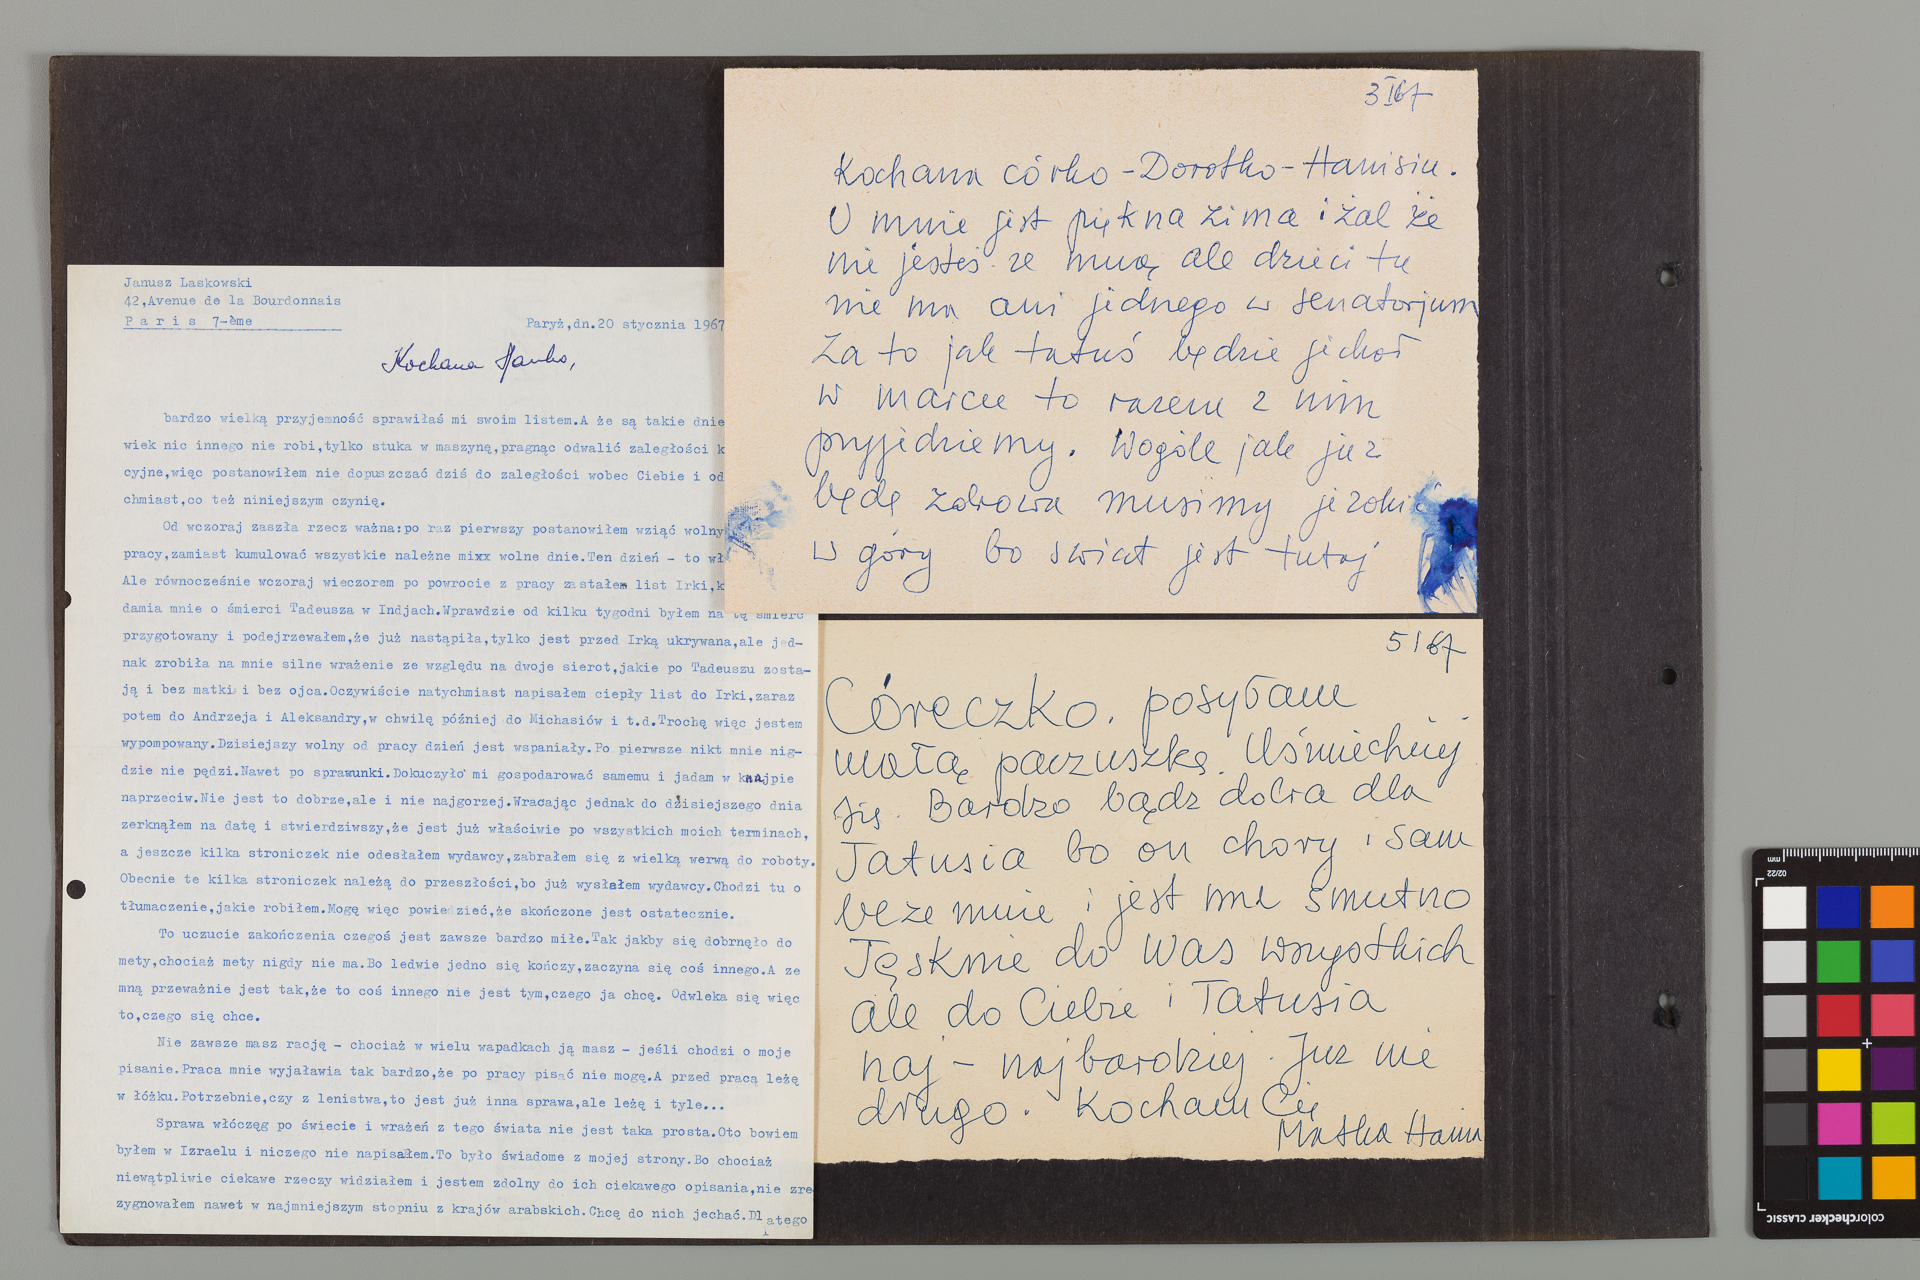 Janusz Laskowski
42,Avenue de la Bourdonnais
P a r i s 7-ème
Paryż,dn.20 stycznia 1967
Kochana Hanko,
bardzo wielką przyjemność sprawiłaś mi swoim listem.A że są takie dnie
wiek nic innego nie robi,tylko stuka w maszynę,pragnąc odwalić zaległości k
cyjne,więc postanowiłem nie dopuszczać dziś do zaległości wobec Ciebie i od
chmiast,co też niniejszym czynię.
Od wczoraj zaszła rzecz ważna:po raz pierwszy postanowiłem wziąć wolny
pracy,zamiast kumulować wszystkie należne mixx wolne dnie.Ten dzień - to wł
Ale równocześnie wczoraj wieczorem po powrocie z pracy zastałem list Irki,k
damia mnie o śmierci Tadeusza w Indjach.Wprawdzie od kilku tygodni byłem na tę śmierć
przygotowany i podejrzewałem,że już nastąpiła,tylko jest przed Irką ukrywana,ale jed-
nak zrobiła na mnie silne wrażenie ze względu na dwoje sierot,jakie po Tadeuszu zosta-
ją i bez matki i bez ojca.Oczywiście natychmiast napisałem ciepły list do Irki,zaraz
potem do Andrzeja i Aleksandry,w chwilę później do Michasiów i t.d.Trochę więc jestem
wypompowany.Dzisiejszy wolny od pracy dzień jest wspaniały.Po pierwsze nikt mnie nig-
dzie nie pędzi.Nawet po sprawunki.Dokuczyło mi gospodarować samemu i jadam w knajpie
naprzeciw.Nie jest to dobrze,ale i nie najgorzej.Wracając jednak do dzisiejszego dnia
zerknąłem na datę i stwierdziwszy,że jest już właściwie po wszystkich moich terminach,
a jeszcze kilka stroniczek nie odesłałem wydawcy,zabrałem się z wielką werwą do roboty.
Obecnie te kilka stroniczek należą do przeszłości,bo już wysłałem wydawcy.Chodzi tu o
tłumaczenie,jakie robiłem.Mogę więc powiedzieć,że skończone jest ostatecznie.
To uczucie zakończenia czegoś jest zawsze bardzo miłe.Tak jakby się dobrnęło do
mety,chociaż mety nigdy nie ma.Bo ledwie jedno się kończy,zaczyna się coś innego.A ze
mną przeważnie jest tak,że to coś innego nie jest tym,czego ja chcę. Odwleka się więc
to,czego się chce.
Nie zawsze masz rację - chociaż w wielu wapadkach ją masz - jeśli chodzi o moje
pisanie.Praca mnie wyjaławia tak bardzo,że po pracy pisać nie mogę.A przed pracą leżę
w łóżku.Potrzebnie,czy z lenistwa,to jest już inna sprawa,ale leżę i tyle...
Sprawa włóczęg po świecie i wrażeń z tego świata nie jest taka prosta.Oto bowiem
byłem w Izraelu i niczego nie napisałem.To było świadome z mojej strony.Bo chociaż
niewątpliwie ciekawe rzeczy widziałem i jestem zdolny do ich ciekawego opisania,nie zre
zygnowałem nawet w najmniejszym stopniu z krajów arabskich.Chcę do nich jechać.Dlatego
3 I 67
Kochana córko - Dorotko - Hanisiu.
U mnie jest piękna zima i żal że
nie jesteś ze mną, ale dzieci tu
nie ma ani jednego w senatorjum
Za to jak tatuś będzie jechał
w marcu to razem z nim
przyjedziemy. Wogóle jak już
będę zdrowa musimy jeździć
w góry bo świat jest tutaj
5 I 67
Córeczko. posyłam
małą paczuszkę. Uśmiechnij
się. Bardzo bądź dobra dla
Tatusia bo on chory i sam
beze mnie i jest mu smutno
Tęsknie do Was wszystkich
ale do Ciebie i Tatusia
naj - najbardziej. Już nie
długo. Kocham Cię
Matka Hania
mm
02/22
colorchecker CLASSIC